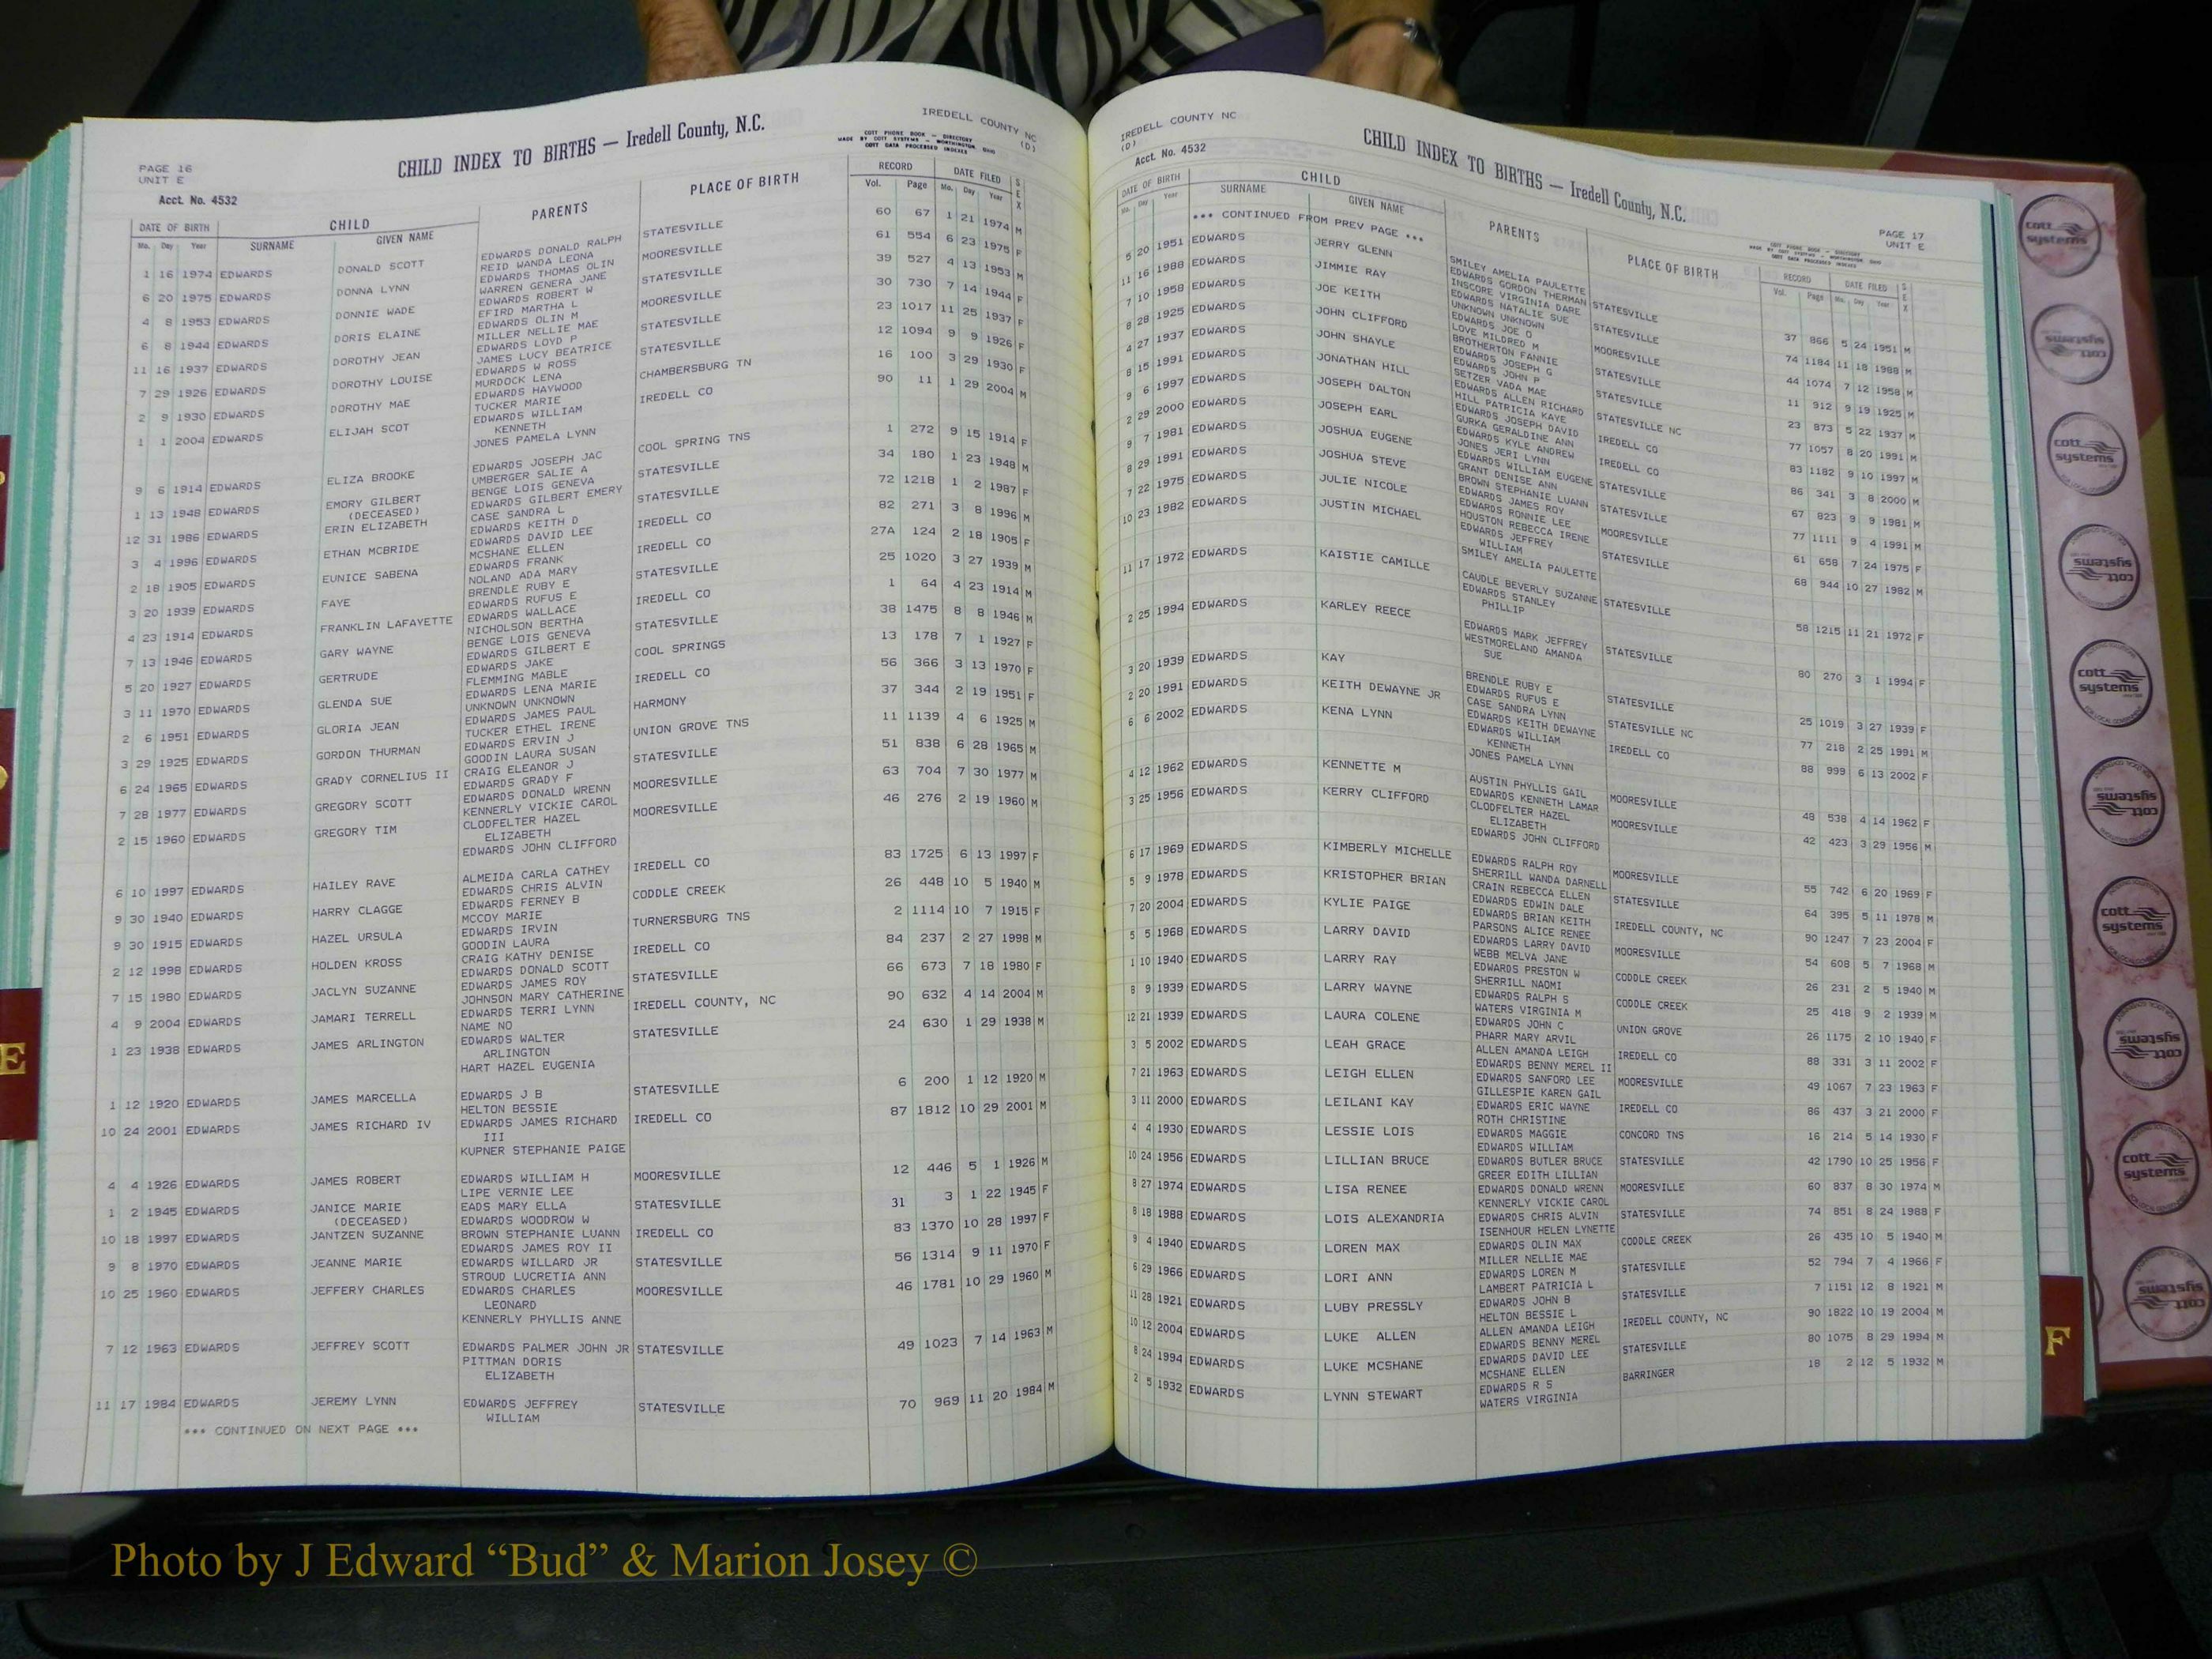 IREDELL COUNTY NC
(D)
COTT PHONE BOOK — DIRECTORY
MADE BY COTT SYSTEMS — WORTHINGTON, OHIO
COTT DATA PROCESSED INDEXES
CHILD INDEX TO BIRTHS — Iredell County, N.C.
PAGE 16
UNIT E
Acct. No. 4532
DATE OF BIRTH CHILD PARENTS PLACE OF BIRTH RECORD DATE FILED SEX
Mo. Day Year SURNAME GIVEN NAME Vol. Page Mo. Day Year
1 16 1974 EDWARDS DONALD SCOTT EDWARDS DONALD RALPH STATESVILLE 60 67 1 21 1974 M
REID WANDA LEONA
6 20 1975 EDWARDS DONNA LYNN EDWARDS THOMAS OLIN MOORESVILLE 61 554 6 23 1975 F
WARREN GENERA JANE
4 8 1953 EDWARDS DONNIE WADE EDWARDS ROBERT W STATESVILLE 39 527 4 13 1953 M
EFIRD MARTHA L
6 8 1944 EDWARDS DORIS ELAINE EDWARDS OLIN M MOORESVILLE 30 730 7 14 1944 F
MILLER NELLIE MAE
11 16 1937 EDWARDS DOROTHY JEAN EDWARDS LOYD P STATESVILLE 23 1017 11 25 1937 F
JAMES LUCY BEATRICE
7 29 1926 EDWARDS DOROTHY LOUISE EDWARDS W ROSS STATESVILLE 12 1094 9 9 1926 F
MURDOCK LENA
2 9 1930 EDWARDS DOROTHY MAE EDWARDS HAYWOOD CHAMBERSBURG TN 16 100 3 29 1930 F
TUCKER MARIE
1 1 2004 EDWARDS ELIJAH SCOT EDWARDS WILLIAM IREDELL CO 90 11 1 29 2004 M
KENNETH
JONES PAMELA LYNN
9 6 1914 EDWARDS ELIZA BROOKE EDWARDS JOSEPH JAC COOL SPRING TNS 1 272 9 15 1914 F
UMBERGER SALIE A
1 13 1948 EDWARDS EMORY GILBERT BENGE LOIS GENEVA STATESVILLE 34 180 1 23 1948 M
(DECEASED) EDWARDS GILBERT EMERY
12 31 1986 EDWARDS ERIN ELIZABETH CASE SANDRA L STATESVILLE 72 1218 1 2 1987 F
EDWARDS KEITH D
3 4 1996 EDWARDS ETHAN MCBRIDE EDWARDS DAVID LEE IREDELL CO 82 271 3 8 1996 M
MCSHANE ELLEN
2 18 1905 EDWARDS EUNICE SABENA EDWARDS FRANK IREDELL CO 27A 124 2 18 1905 F
NOLAND ADA MARY
3 20 1939 EDWARDS FAYE BRENDLE RUBY E STATESVILLE 25 1020 3 27 1939 M
EDWARDS RUFUS E
4 23 1914 EDWARDS FRANKLIN LAFAYETTE EDWARDS WALLACE IREDELL CO 1 64 4 23 1914 M
NICHOLSON BERTHA
7 13 1946 EDWARDS GARY WAYNE BENGE LOIS GENEVA STATESVILLE 38 1475 8 8 1946 M
EDWARDS GILBERT E
5 20 1927 EDWARDS GERTRUDE EDWARDS JAKE COOL SPRINGS 13 178 7 1 1927 F
FLEMMING MABLE
3 11 1970 EDWARDS GLENDA SUE EDWARDS LENA MARIE IREDELL CO 56 366 3 13 1970 F
UNKNOWN UNKNOWN
2 6 1951 EDWARDS GLORIA JEAN EDWARDS JAMES PAUL HARMONY 37 344 2 19 1951 F
TUCKER ETHEL IRENE
3 29 1925 EDWARDS GORDON THURMAN EDWARDS ERVIN J UNION GROVE TNS 11 1139 4 6 1925 M
GOODIN LAURA SUSAN
6 24 1965 EDWARDS GRADY CORNELIUS II CRAIG ELEANOR J STATESVILLE 51 838 6 28 1965 M
EDWARDS GRADY F
7 28 1977 EDWARDS GREGORY SCOTT EDWARDS DONALD WRENN MOORESVILLE 63 704 7 30 1977 M
KENNERLY VICKIE CAROL
2 15 1960 EDWARDS GREGORY TIM CLODFELTER HAZEL MOORESVILLE 46 276 2 19 1960 M
ELIZABETH
EDWARDS JOHN CLIFFORD
6 10 1997 EDWARDS HAILEY RAVE ALMEIDA CARLA CATHEY IREDELL CO 83 1725 6 13 1997 F
EDWARDS CHRIS ALVIN
9 30 1940 EDWARDS HARRY CLAGGE EDWARDS FERNEY B CODDLE CREEK 26 448 10 5 1940 M
MCCOY MARIE
9 30 1915 EDWARDS HAZEL URSULA EDWARDS IRVIN TURNERSBURG TNS 2 1114 10 7 1915 F
GOODIN LAURA
2 12 1998 EDWARDS HOLDEN KROSS CRAIG KATHY DENISE IREDELL CO 84 237 2 27 1998 M
EDWARDS DONALD SCOTT
7 15 1980 EDWARDS JACLYN SUZANNE EDWARDS JAMES ROY STATESVILLE 66 673 7 18 1980 F
JOHNSON MARY CATHERINE
4 9 2004 EDWARDS JAMARI TERRELL EDWARDS TERRI LYNN IREDELL COUNTY, NC 90 632 4 14 2004 M
NAME NO
1 23 1938 EDWARDS JAMES ARLINGTON EDWARDS WALTER STATESVILLE 24 630 1 29 1938 M
ARLINGTON
HART HAZEL EUGENIA
1 12 1920 EDWARDS JAMES MARCELLA EDWARDS J B STATESVILLE 6 200 1 12 1920 M
HELTON BESSIE
10 24 2001 EDWARDS JAMES RICHARD IV EDWARDS JAMES RICHARD IREDELL CO 87 1812 10 29 2001 M
III
KUPNER STEPHANIE PAIGE
4 4 1926 EDWARDS JAMES ROBERT EDWARDS WILLIAM H MOORESVILLE 12 446 5 1 1926 M
LIPE VERNIE LEE
1 2 1945 EDWARDS JANICE MARIE EADS MARY ELLA STATESVILLE 31 3 1 22 1945 F
(DECEASED) EDWARDS WOODROW W
10 18 1997 EDWARDS JANTZEN SUZANNE BROWN STEPHANIE LUANN IREDELL CO 83 1370 10 28 1997 F
EDWARDS JAMES ROY II
9 8 1970 EDWARDS JEANNE MARIE EDWARDS WILLARD JR STATESVILLE 56 1314 9 11 1970 F
STROUD LUCRETIA ANN
10 25 1960 EDWARDS JEFFERY CHARLES EDWARDS CHARLES MOORESVILLE 46 1781 10 29 1960 M
LEONARD
KENNERLY PHYLLIS ANNE
7 12 1963 EDWARDS JEFFREY SCOTT EDWARDS PALMER JOHN JR STATESVILLE 49 1023 7 14 1963 M
PITTMAN DORIS
ELIZABETH
11 17 1984 EDWARDS JEREMY LYNN EDWARDS JEFFREY STATESVILLE 70 969 11 20 1984 M
WILLIAM
*** CONTINUED ON NEXT PAGE ***
IREDELL COUNTY NC
(D)
Acct. No. 4532
CHILD INDEX TO BIRTHS — Iredell County, N.C.
PAGE 17
UNIT E
COTT PHONE BOOK — DIRECTORY
MADE BY COTT SYSTEMS — WORTHINGTON, OHIO
COTT DATA PROCESSED INDEXES
DATE OF BIRTH CHILD PARENTS PLACE OF BIRTH RECORD DATE FILED SEX
Mo. Day Year SURNAME GIVEN NAME Vol. Page Mo. Day Year
*** CONTINUED FROM PREV PAGE ***
SMILEY AMELIA PAULETTE
5 20 1951 EDWARDS JERRY GLENN EDWARDS GORDON THERMAN STATESVILLE 37 866 5 24 1951 M
INSCORE VIRGINIA DARE
11 16 1988 EDWARDS JIMMIE RAY EDWARDS NATALIE SUE STATESVILLE 74 1184 11 18 1988 M
UNKNOWN UNKNOWN
7 10 1958 EDWARDS JOE KEITH EDWARDS JOE O MOORESVILLE 44 1074 7 12 1958 M
LOVE MILDRED M
8 28 1925 EDWARDS JOHN CLIFFORD BROTHERTON FANNIE STATESVILLE 11 912 9 19 1925 M
EDWARDS JOSEPH G
4 27 1937 EDWARDS JOHN SHAYLE EDWARDS JOHN P STATESVILLE 23 873 5 22 1937 M
SETZER VADA MAE
8 15 1991 EDWARDS JONATHAN HILL EDWARDS ALLEN RICHARD STATESVILLE NC 77 1057 8 20 1991 M
HILL PATRICIA KAYE
9 6 1997 EDWARDS JOSEPH DALTON EDWARDS JOSEPH DAVID IREDELL CO 83 1182 9 10 1997 M
GURKA GERALDINE ANN
2 29 2000 EDWARDS JOSEPH EARL EDWARDS KYLE ANDREW IREDELL CO 86 341 3 8 2000 M
JONES JERI LYNN
9 7 1981 EDWARDS JOSHUA EUGENE EDWARDS WILLIAM EUGENE STATESVILLE 67 823 9 9 1981 M
GRANT DENISE ANN
8 29 1991 EDWARDS JOSHUA STEVE BROWN STEPHANIE LUANN STATESVILLE 77 1111 9 4 1991 M
EDWARDS JAMES ROY
7 22 1975 EDWARDS JULIE NICOLE EDWARDS RONNIE LEE MOORESVILLE 61 658 7 24 1975 F
HOUSTON REBECCA IRENE
10 23 1982 EDWARDS JUSTIN MICHAEL EDWARDS JEFFREY STATESVILLE 68 944 10 27 1982 M
WILLIAM
SMILEY AMELIA PAULETTE
11 17 1972 EDWARDS KAISTIE CAMILLE CAUDLE BEVERLY SUZANNE STATESVILLE 58 1215 11 21 1972 F
EDWARDS STANLEY
PHILLIP
2 25 1994 EDWARDS KARLEY REECE EDWARDS MARK JEFFREY STATESVILLE 80 270 3 1 1994 F
WESTMORELAND AMANDA
SUE
3 20 1939 EDWARDS KAY BRENDLE RUBY E STATESVILLE 25 1019 3 27 1939 F
EDWARDS RUFUS E
2 20 1991 EDWARDS KEITH DEWAYNE JR CASE SANDRA LYNN STATESVILLE NC 77 218 2 25 1991 M
EDWARDS KEITH DEWAYNE
6 6 2002 EDWARDS KENA LYNN EDWARDS WILLIAM IREDELL CO 88 999 6 13 2002 F
KENNETH
JONES PAMELA LYNN
4 12 1962 EDWARDS KENNETTE M AUSTIN PHYLLIS GAIL MOORESVILLE 48 538 4 14 1962 F
EDWARDS KENNETH LAMAR
3 25 1956 EDWARDS KERRY CLIFFORD CLODFELTER HAZEL MOORESVILLE 42 423 3 29 1956 M
ELIZABETH
EDWARDS JOHN CLIFFORD
6 17 1969 EDWARDS KIMBERLY MICHELLE EDWARDS RALPH ROY MOORESVILLE 55 742 6 20 1969 F
SHERRILL WANDA DARNELL
5 9 1978 EDWARDS KRISTOPHER BRIAN CRAIN REBECCA ELLEN STATESVILLE 64 395 5 11 1978 M
EDWARDS EDWIN DALE
7 20 2004 EDWARDS KYLIE PAIGE EDWARDS BRIAN KEITH IREDELL COUNTY, NC 90 1247 7 23 2004 F
PARSONS ALICE RENEE
5 5 1968 EDWARDS LARRY DAVID EDWARDS LARRY DAVID MOORESVILLE 54 608 5 7 1968 M
WEBB MELVA JANE
1 10 1940 EDWARDS LARRY RAY EDWARDS PRESTON W CODDLE CREEK 26 231 2 5 1940 M
SHERRILL NAOMI
8 9 1939 EDWARDS LARRY WAYNE EDWARDS RALPH S CODDLE CREEK 25 418 9 2 1939 M
WATERS VIRGINIA M
12 21 1939 EDWARDS LAURA COLENE EDWARDS JOHN C UNION GROVE 26 1175 2 10 1940 F
PHARR MARY ARVIL
3 5 2002 EDWARDS LEAH GRACE ALLEN AMANDA LEIGH IREDELL CO 88 331 3 11 2002 F
EDWARDS BENNY MEREL II
7 21 1963 EDWARDS LEIGH ELLEN EDWARDS SANFORD LEE MOORESVILLE 49 1067 7 23 1963 F
GILLESPIE KAREN GAIL
3 11 2000 EDWARDS LEILANI KAY EDWARDS ERIC WAYNE IREDELL CO 86 437 3 21 2000 F
ROTH CHRISTINE
4 4 1930 EDWARDS LESSIE LOIS EDWARDS MAGGIE CONCORD TNS 16 214 5 14 1930 F
EDWARDS WILLIAM
10 24 1956 EDWARDS LILLIAN BRUCE EDWARDS BUTLER BRUCE STATESVILLE 42 1790 10 25 1956 F
GREER EDITH LILLIAN
8 27 1974 EDWARDS LISA RENEE EDWARDS DONALD WRENN MOORESVILLE 60 837 8 30 1974 M
KENNERLY VICKIE CAROL
8 18 1988 EDWARDS LOIS ALEXANDRIA EDWARDS CHRIS ALVIN STATESVILLE 74 851 8 24 1988 F
ISENHOUR HELEN LYNETTE
9 4 1940 EDWARDS LOREN MAX EDWARDS OLIN MAX CODDLE CREEK 26 435 10 5 1940 M
MILLER NELLIE MAE
6 29 1966 EDWARDS LORI ANN EDWARDS LOREN M STATESVILLE 52 794 7 4 1966 F
LAMBERT PATRICIA L
11 28 1921 EDWARDS LUBY PRESSLY EDWARDS JOHN B STATESVILLE 7 1151 12 8 1921 M
HELTON BESSIE L
10 12 2004 EDWARDS LUKE ALLEN ALLEN AMANDA LEIGH IREDELL COUNTY, NC 90 1822 10 19 2004 M
EDWARDS BENNY MEREL
8 24 1994 EDWARDS LUKE MCSHANE EDWARDS DAVID LEE STATESVILLE 80 1075 8 29 1994 M
MCSHANE ELLEN
2 5 1932 EDWARDS LYNN STEWART EDWARDS R S BARRINGER 18 2 12 5 1932 M
WATERS VIRGINIA
E
F
cott systems
cott systems
cott systems
cott systems
cott systems
cott systems
cott systems
cott systems
cott systems
cott systems
Photo by J Edward “Bud” & Marion Josey ©